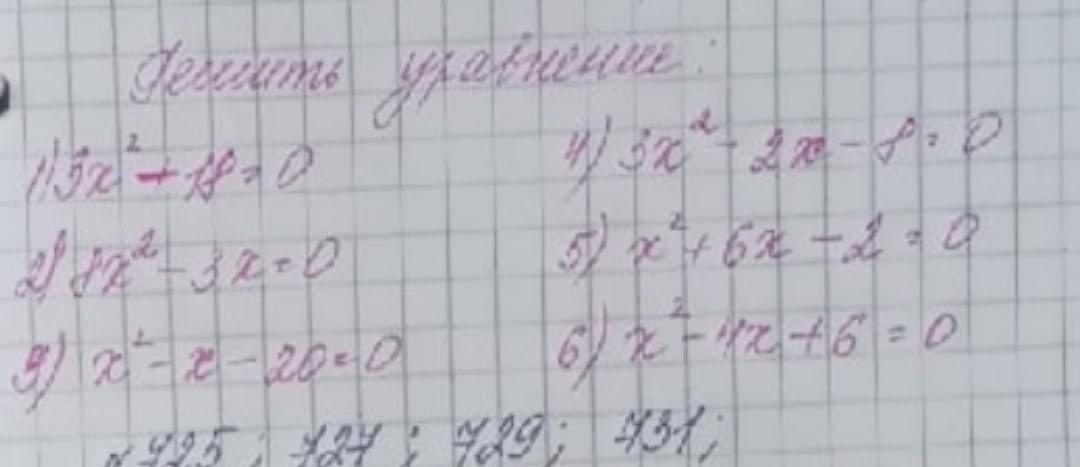 Решить уравнение:
1) 5x² + 18 = 0
2) 8x² - 3x = 0
3) x² - x - 20 = 0
4) 3x² - 2x - 8 = 0
5) x² + 6x - 2 = 0
6) x² - 4x + 6 = 0
725; 727; 729; 731;